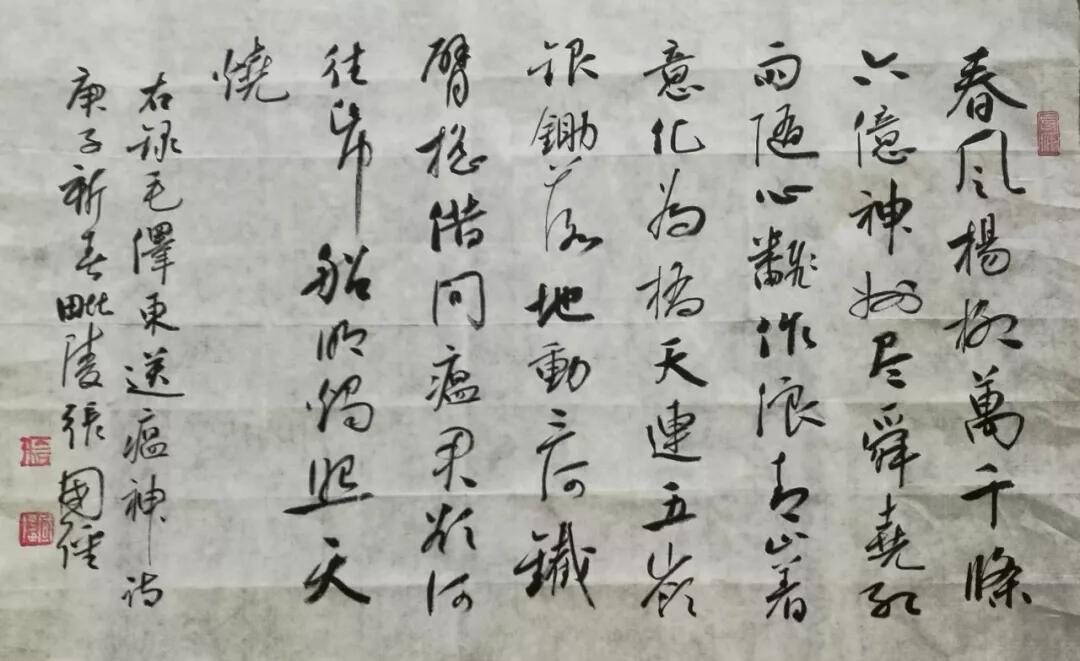 春风楊柳萬千條
六億神州尽舜堯红
雨随心翻作浪青山着
意化為橋天連五嶺
银鋤落地動三河鐵
臂摇借问瘟君欲何
往纸船明燭照天
燒
右録毛澤東送瘟神诗
庚子新春毗陵張國